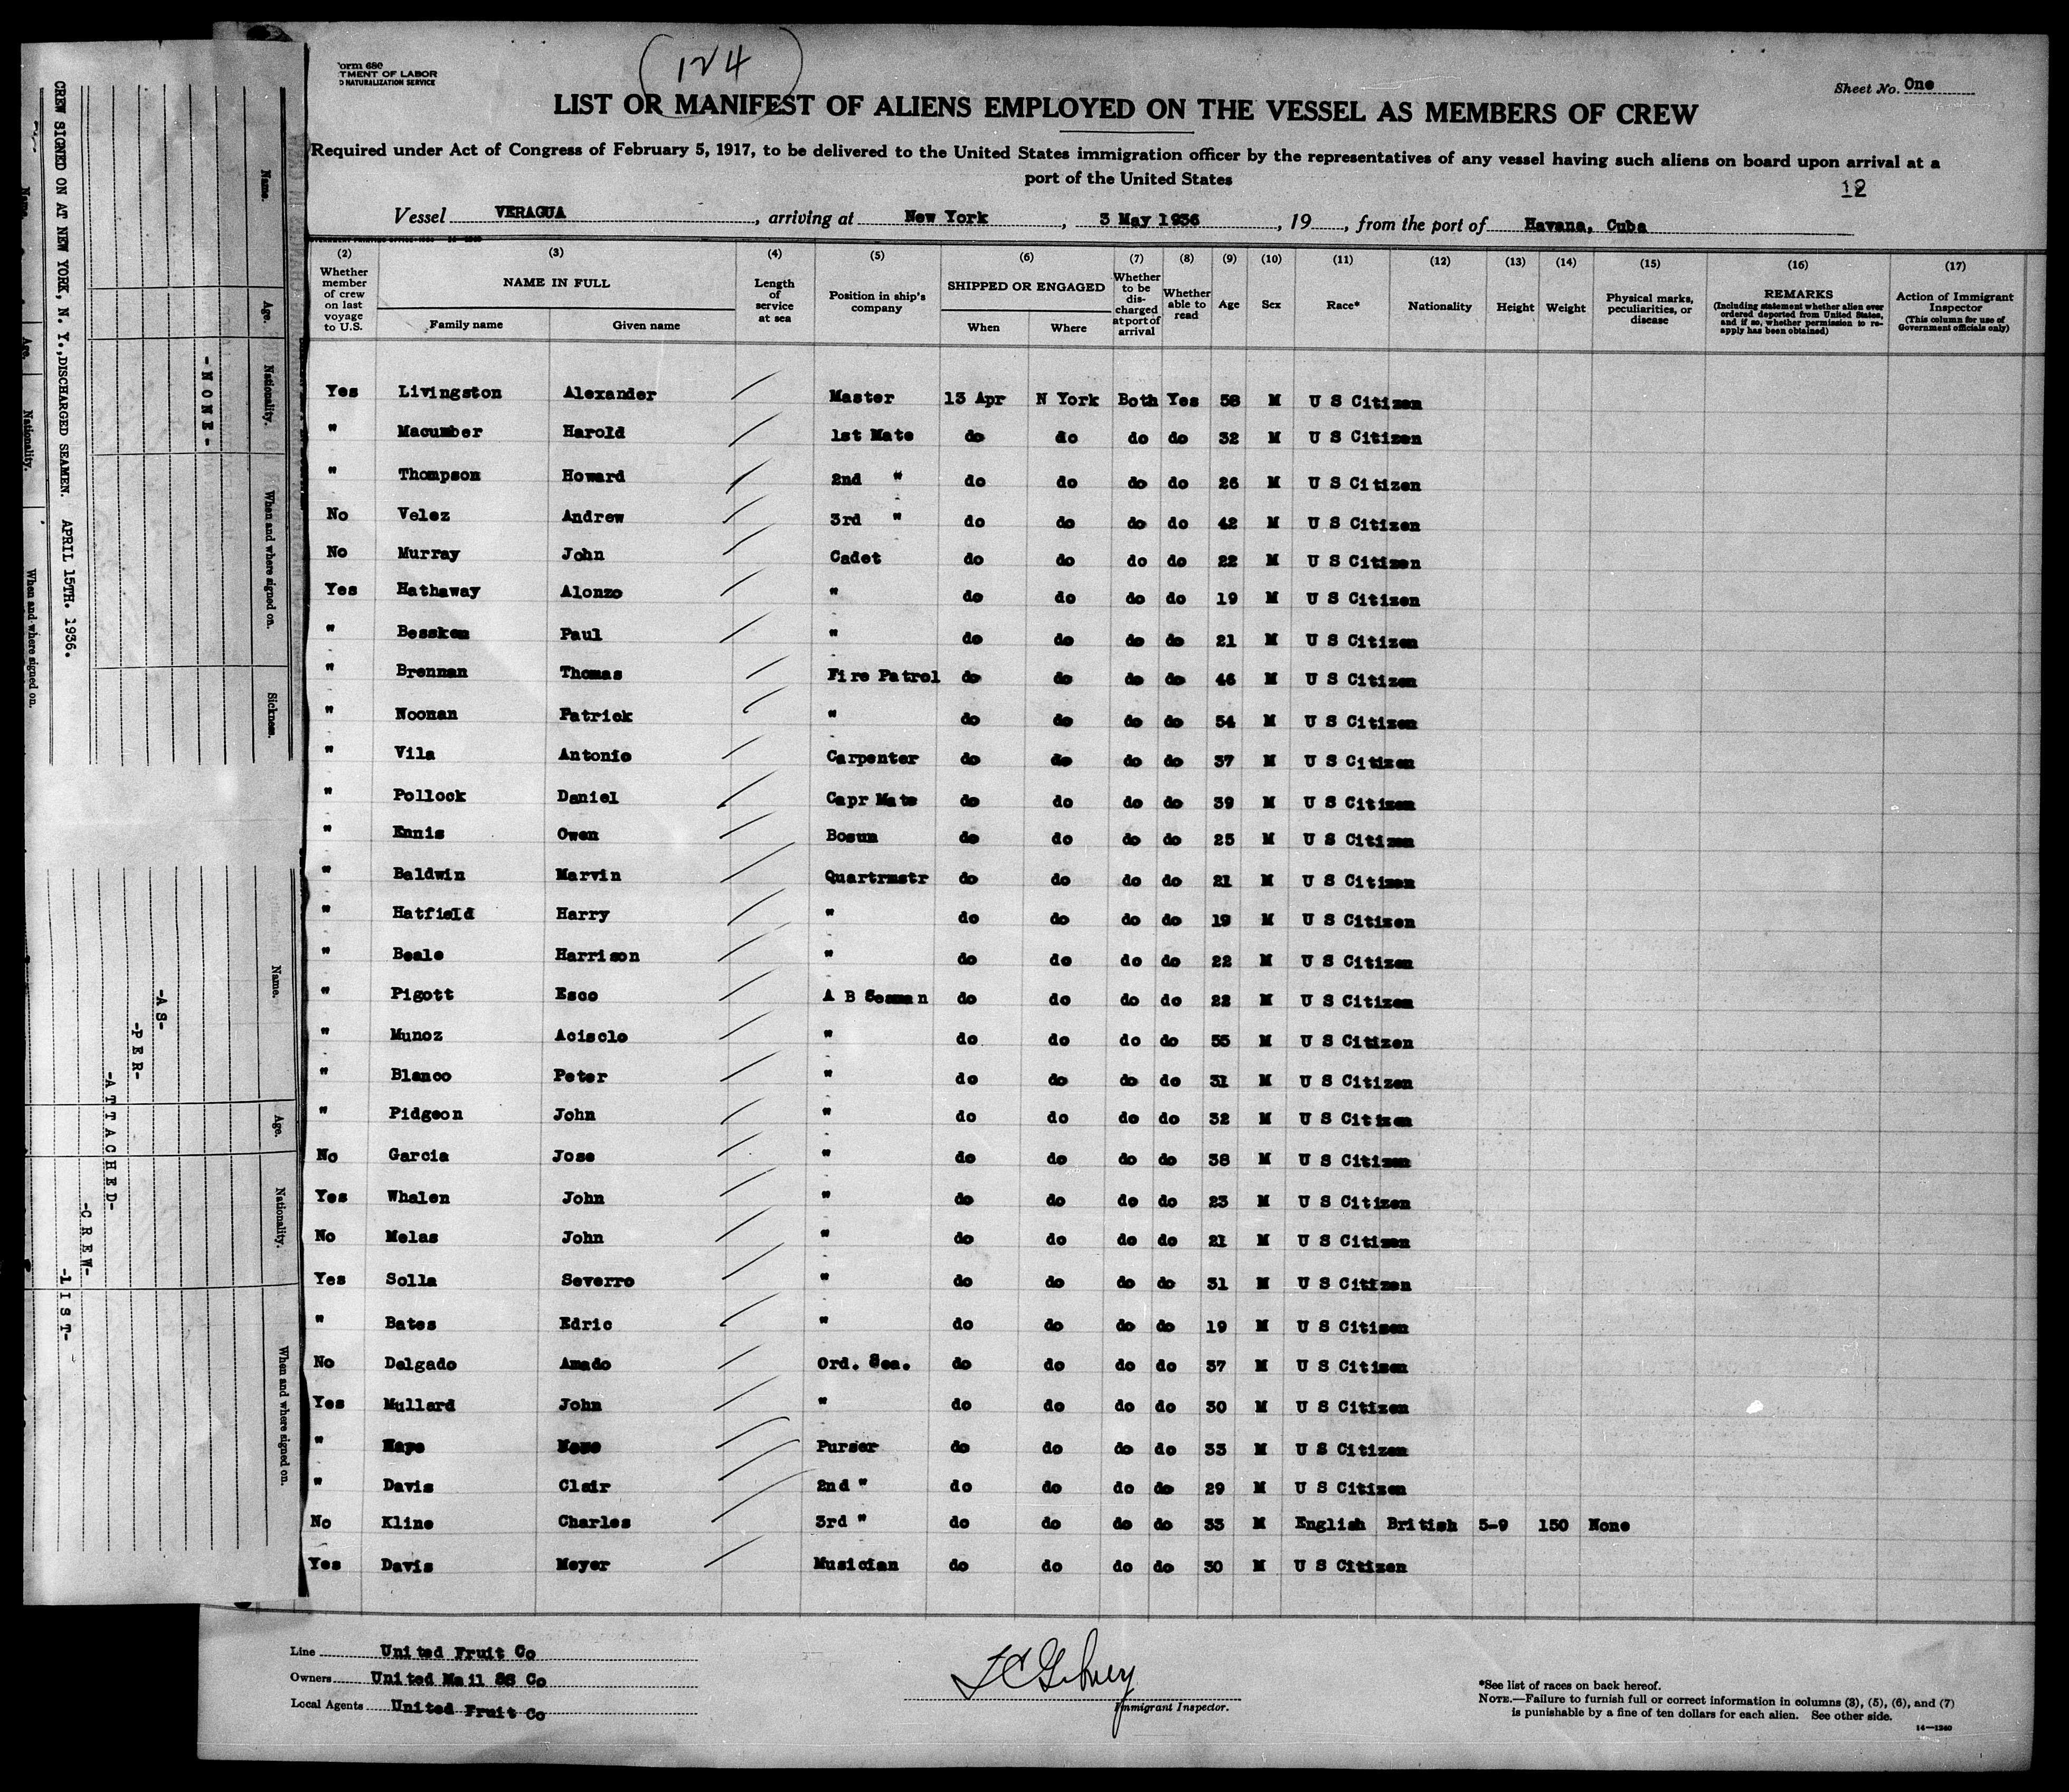 (124)
orm 680
TMENT OF LABOR
D NATURALIZATION SERVICE
Sheet No. One
LIST OR MANIFEST OF ALIENS EMPLOYED ON THE VESSEL AS MEMBERS OF CREW
Required under Act of Congress of February 5, 1917, to be delivered to the United States immigration officer by the representatives of any vessel having such aliens on board upon arrival at a
port of the United States
12
Vessel VERAGUA, arriving at New York, 3 May 1936, 19, from the port of Havana, Cuba
(2) (3) (4) (5) (6) (7) (8) (9) (10) (11) (12) (13) (14) (15) (16) (17)
Whether member of crew on last voyage to U.S. NAME IN FULL Family name Given name Length of service at sea Position in ship's company SHIPPED OR ENGAGED When Where Whether to be discharged at port of arrival Whether able to read Age Sex Race* Nationality Height Weight Physical marks, peculiarities, or disease REMARKS (Including statement whether alien ever ordered deported from United States, and if so, whether permission to reapply has been obtained) Action of Immigrant Inspector (This column for use of Government officials only)
Yes Livingston Alexander Master 13 Apr N York Both Yes 58 M U S Citizen
" Macumber Harold 1st Mate do do do do 32 M U S Citizen
" Thompson Howard 2nd " do do do do 26 M U S Citizen
No Velez Andrew 3rd " do do do do 42 M U S Citizen
No Murray John Cadet do do do do 22 M U S Citizen
Yes Hathaway Alonzo " do do do do 19 M U S Citizen
" Besskem Paul " do do do do 21 M U S Citizen
" Brennan Thomas Fire Patrol do do do do 46 M U S Citizen
" Noonan Patrick " do do do do 54 M U S Citizen
" Vila Antonio Carpenter do do do do 37 M U S Citizen
" Pollock Daniel Capr Mate do do do do 39 M U S Citizen
" Ennis Owen Bosun do do do do 25 M U S Citizen
" Baldwin Marvin Quartrmstr do do do do 21 M U S Citizen
" Hatfield Harry " do do do do 19 M U S Citizen
" Beale Harrison " do do do do 22 M U S Citizen
" Pigott Esco A B Seaman do do do do 22 M U S Citizen
" Munoz Acisclo " do do do do 55 M U S Citizen
" Blanco Peter " do do do do 31 M U S Citizen
" Pidgeon John " do do do do 32 M U S Citizen
No Garcia Jose " do do do do 38 M U S Citizen
Yes Whalen John " do do do do 23 M U S Citizen
No Melas John " do do do do 21 M U S Citizen
Yes Solla Severro " do do do do 31 M U S Citizen
" Bates Edric " do do do do 19 M U S Citizen
No Delgado Amado Ord. Sea. do do do do 37 M U S Citizen
Yes Mullard John " do do do do 30 M U S Citizen
" Purser do do do do 33 M U S Citizen
" Davis Clair 2nd " do do do do 29 M U S Citizen
No Kline Charles 3rd " do do do do 33 M English British 5-9 150 None
Yes Davis Meyer Musician do do do do 30 M U S Citizen
Line United Fruit Co
Owners United Mail SS Co
Local Agents United Fruit Co
Immigrant Inspector.
*See list of races on back hereof.
NOTE.—Failure to furnish full or correct information in columns (3), (5), (6), and (7)
is punishable by a fine of ten dollars for each alien. See other side.
14—1240
CREW SIGNED ON AT NEW YORK, N. Y., DISCHARGED SEAMEN. APRIL 15TH. 1936.
Name. Age. Nationality. When and where signed on. Sickness.
-NONE-
Name. Age. Nationality. When and where signed on.
Name. Age. Nationality. When and where signed on.
-AS-
-PER-
-ATTACHED-
-CREW-
-LIST-